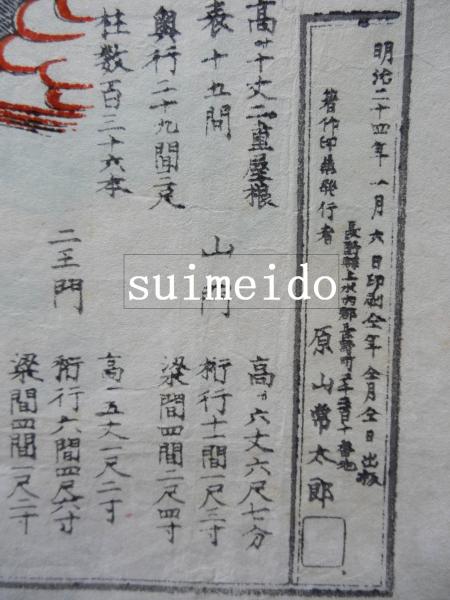 明治二十四年一月六日印刷仝年仝月仝日出板
長野縣上水内郡長野町
著作印刷兼発行者 原山常太郎
高サ十丈二重屋根
表十五間
奥行二十九間二尺
柱数百三十六本
山門
高サ六丈六尺七分
桁行十一間一尺三寸
梁間四間一尺四寸
二王門
高五丈一尺二寸
桁行六間四尺六寸
梁間四間一尺二寸
suimeido